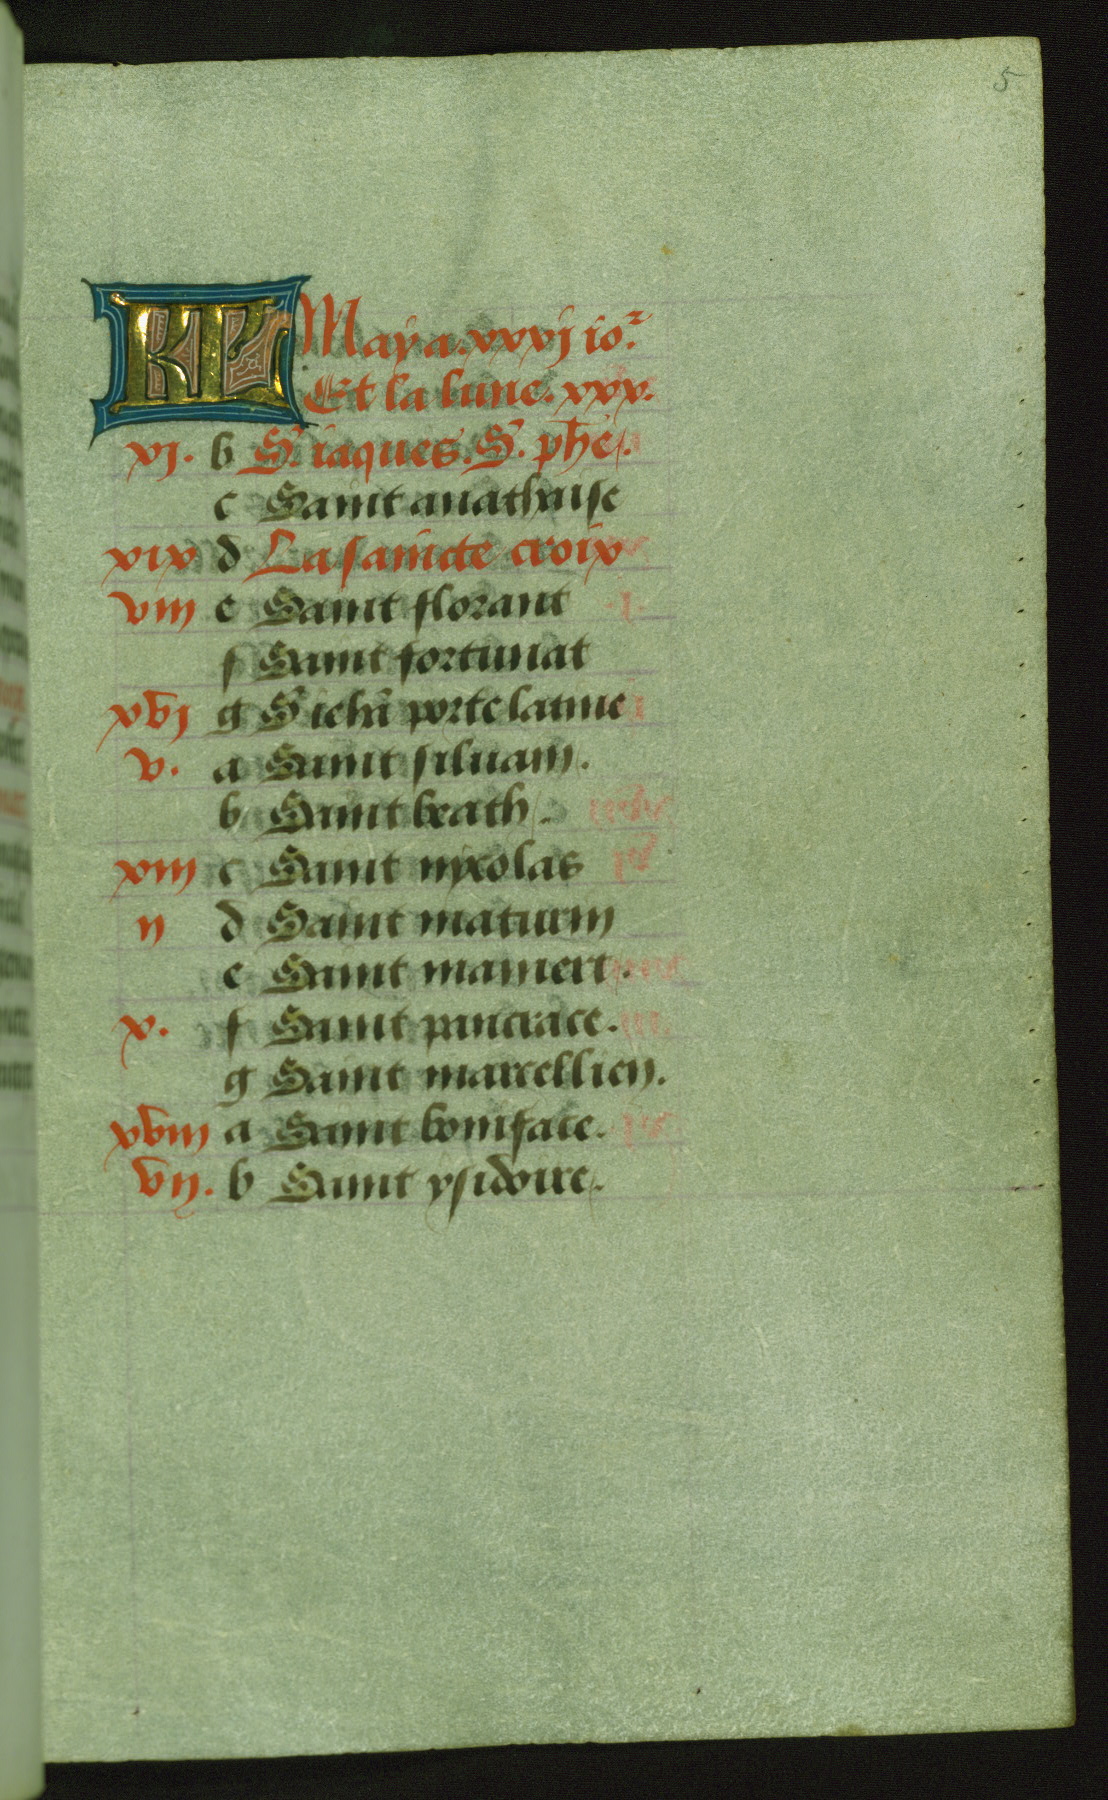 5
KL May a. xxxj io.
Et la lune. xxx.
xj. b S. iaques. S. phe.
c Saint anathaise
xix d La saincte croix
viii e Saint florant
f Saint fortunat
xvj g S iehā porte latine
v. a Saint siluain.
b Saint beath.
xiii c Saint nycolas
ii d Saint maturin
e Saint mamert.
x. f Saint pancrace.
g Saint marcellien.
xviii a Saint boniface.
vij. b Saint ysidoire.